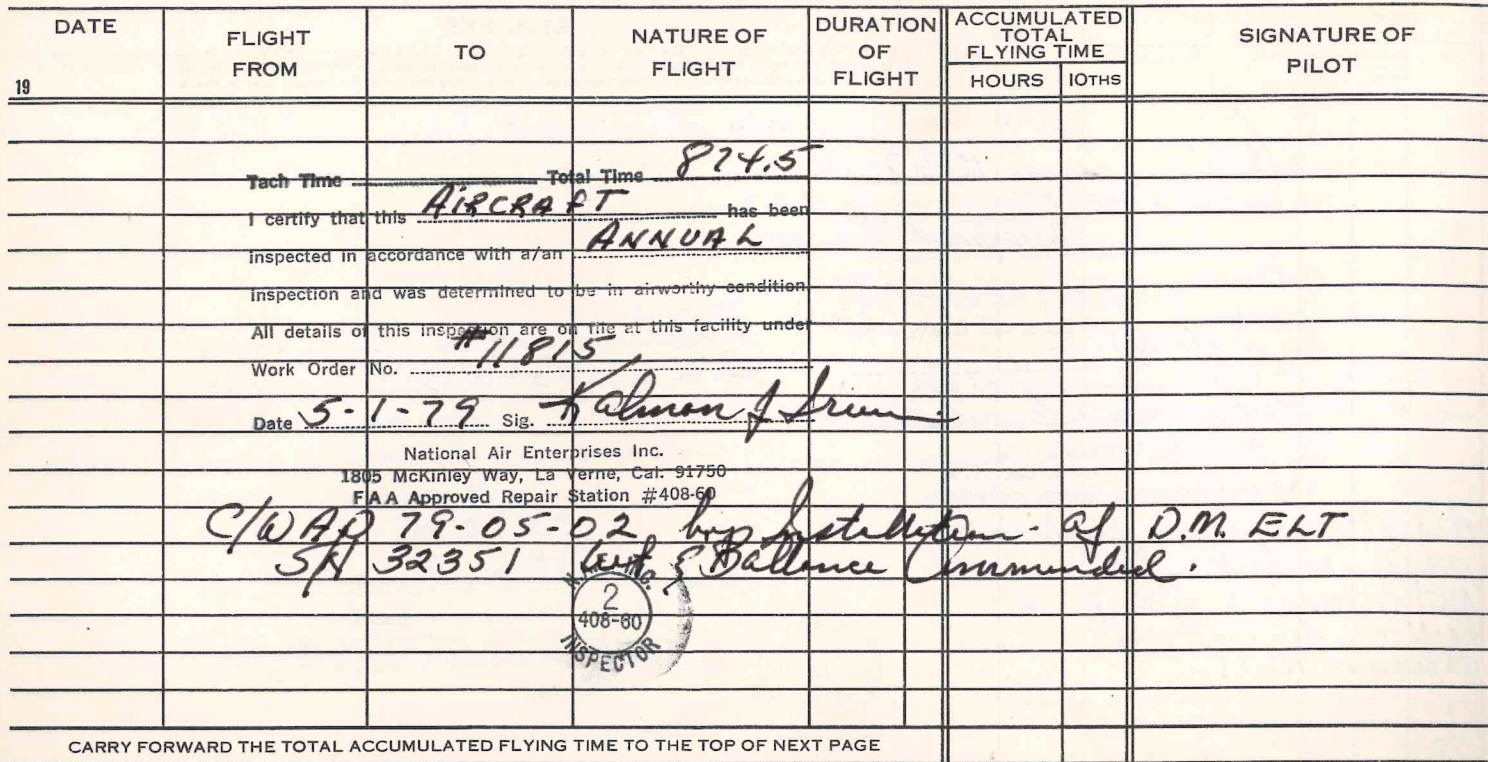 DATE FLIGHT FROM TO NATURE OF FLIGHT DURATION OF FLIGHT ACCUMULATED TOTAL FLYING TIME SIGNATURE OF PILOT
19 HOURS 10THS
Tach Time Total Time 874.5
I certify that this AIRCRAFT has been
inspected in accordance with a/an ANNUAL
inspection and was determined to be in airworthy condition
All details of this inspection are on file at this facility under
Work Order No. #11815
Date 5-1-79 Sig. Kalmon J
National Air Enterprises Inc.
1805 McKinley Way, La Verne, Cal. 91750
FAA Approved Repair Station #408-60
C/W AD 79-05-02 by Installation of D.M. ELT
S/N 32351 & Ballence
2
408-60
INSPECTOR
CARRY FORWARD THE TOTAL ACCUMULATED FLYING TIME TO THE TOP OF NEXT PAGE